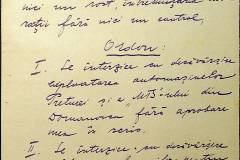 nici un rost, întrebuințarea
rații fără nici un control,
Ordon:
I. Se interzice cu desăvârșire
exploatarea automașinelor
Preturei și a
Dumneavoa fără aprobare
mea în scris.
II. Se interzice cu desăvârșire